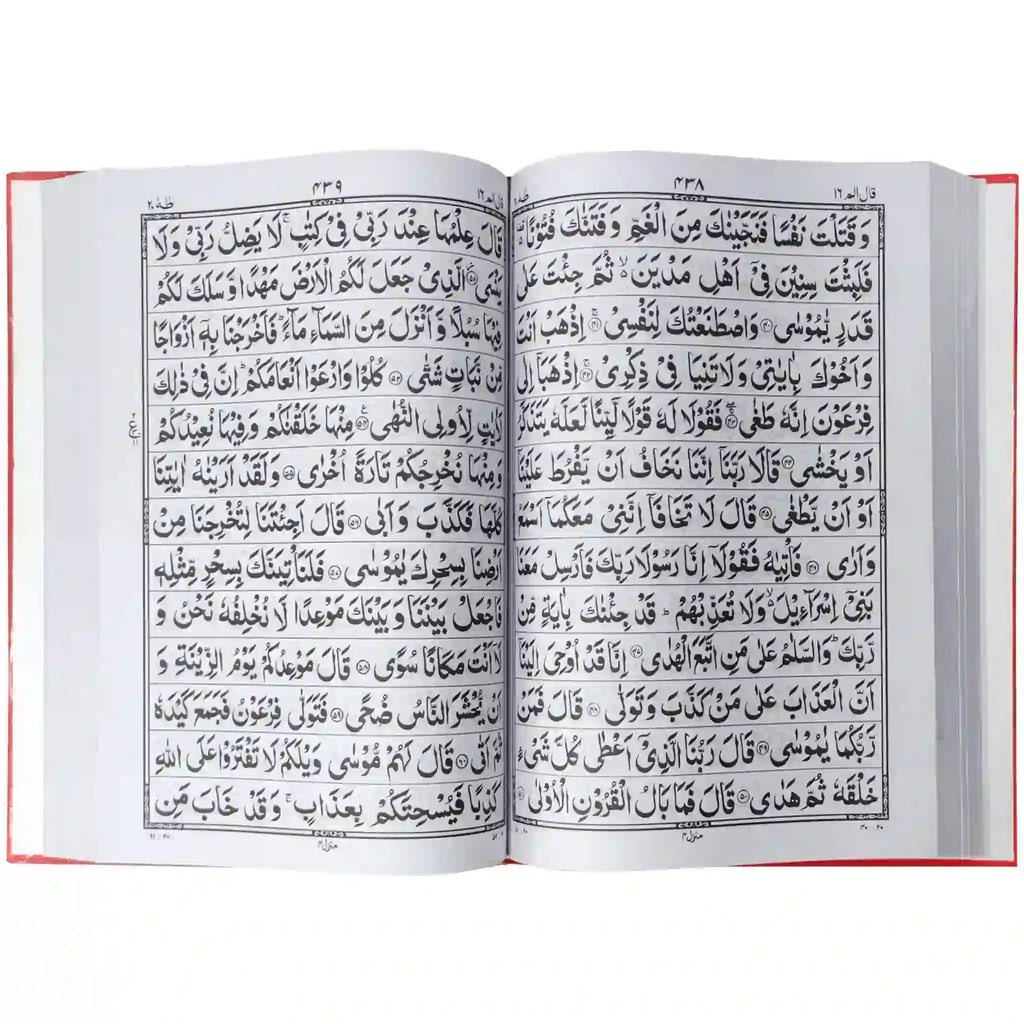 قال الم ١٦
٤٣٨
طٰهٰ
وَ قَتَلْتَ نَفْسًا فَنَجَّيْنٰكَ مِنَ الْغَمِّ وَ فَتَنّٰكَ فُتُوْنًا
فَلَبِثْتَ سِنِيْنَ فِيْۤ اَهْلِ مَدْيَنَ ۙ ثُمَّ جِئْتَ عَلٰى
قَدَرٍ يّٰمُوْسٰى ﴿۴۰﴾ وَاصْطَنَعْتُكَ لِنَفْسِيْ ﴿۴۱﴾ اِذْهَبْ اَنْتَ
وَ اَخُوْكَ بِاٰيٰتِيْ وَلَا تَنِيَا فِيْ ذِكْرِيْ ﴿۴۲﴾ اِذْهَبَاۤ اِلٰى
فِرْعَوْنَ اِنَّهٗ طَغٰى ﴿۴۳﴾ فَقُوْلَا لَهٗ قَوْلًا لَّيِّنًا لَّعَلَّهٗ يَتَذَكَّرُ
اَوْ يَخْشٰى ﴿۴۴﴾ قَالَا رَبَّنَاۤ اِنَّنَا نَخَافُ اَنْ يَّفْرُطَ عَلَيْنَاۤ
اَوْ اَنْ يَّطْغٰى ﴿۴۵﴾ قَالَ لَا تَخَافَاۤ اِنَّنِيْ مَعَكُمَاۤ اَسْمَعُ
وَ اَرٰى ﴿۴۶﴾ فَاْتِيٰهُ فَقُوْلَاۤ اِنَّا رَسُوْلَا رَبِّكَ فَاَرْسِلْ مَعَنَا
بَنِيْۤ اِسْرَآءِيْلَ ۙ وَلَا تُعَذِّبْهُمْ ؕ قَدْ جِئْنٰكَ بِاٰيَةٍ مِّنْ
رَّبِّكَ ؕ وَالسَّلٰمُ عَلٰى مَنِ اتَّبَعَ الْهُدٰى ﴿۴۷﴾ اِنَّا قَدْ اُوْحِيَ اِلَيْنَاۤ
اَنَّ الْعَذَابَ عَلٰى مَنْ كَذَّبَ وَ تَوَلّٰى ﴿۴۸﴾ قَالَ فَمَنْ
رَّبُّكُمَا يٰمُوْسٰى ﴿۴۹﴾ قَالَ رَبُّنَا الَّذِيْۤ اَعْطٰى كُلَّ شَيْءٍ
خَلْقَهٗ ثُمَّ هَدٰى ﴿۵۰﴾ قَالَ فَمَا بَالُ الْقُرُوْنِ الْاُوْلٰى ﴿۵۱﴾
منزل ٤
قال الم ١٦
٤٣٩
طٰهٰ ٢٠
قَالَ عِلْمُهَا عِنْدَ رَبِّيْ فِيْ كِتٰبٍ ۚ لَا يَضِلُّ رَبِّيْ وَلَا
يَنْسَى ﴿۵۲﴾ الَّذِيْ جَعَلَ لَكُمُ الْاَرْضَ مَهْدًا وَّ سَلَكَ لَكُمْ
فِيْهَا سُبُلًا وَّ اَنْزَلَ مِنَ السَّمَآءِ مَآءً ؕ فَاَخْرَجْنَا بِهٖۤ اَزْوَاجًا
مِّنْ نَّبَاتٍ شَتّٰى ﴿۵۳﴾ كُلُوْا وَارْعَوْا اَنْعَامَكُمْ ؕ اِنَّ فِيْ ذٰلِكَ
لَاٰيٰتٍ لِّاُولِي النُّهٰى ﴿۵۴﴾ مِنْهَا خَلَقْنٰكُمْ وَ فِيْهَا نُعِيْدُكُمْ
وَ مِنْهَا نُخْرِجُكُمْ تَارَةً اُخْرٰى ﴿۵۵﴾ وَلَقَدْ اَرَيْنٰهُ اٰيٰتِنَا
كُلَّهَا فَكَذَّبَ وَ اَبٰى ﴿۵۶﴾ قَالَ اَجِئْتَنَا لِتُخْرِجَنَا مِنْ
اَرْضِنَا بِسِحْرِكَ يٰمُوْسٰى ﴿۵۷﴾ فَلَنَاْتِيَنَّكَ بِسِحْرٍ مِّثْلِهٖ
فَاجْعَلْ بَيْنَنَا وَ بَيْنَكَ مَوْعِدًا لَّا نُخْلِفُهٗ نَحْنُ وَ
لَاۤ اَنْتَ مَكَانًا سُوًى ﴿۵۸﴾ قَالَ مَوْعِدُكُمْ يَوْمُ الزِّيْنَةِ وَ
اَنْ يُّحْشَرَ النَّاسُ ضُحًى ﴿۵۹﴾ فَتَوَلّٰى فِرْعَوْنُ فَجَمَعَ كَيْدَهٗ
ثُمَّ اَتٰى ﴿۶۰﴾ قَالَ لَهُمْ مُّوْسٰى وَيْلَكُمْ لَا تَفْتَرُوْا عَلَى اللّٰهِ
كَذِبًا فَيُسْحِتَكُمْ بِعَذَابٍ ۚ وَ قَدْ خَابَ مَنِ
منزل ٤